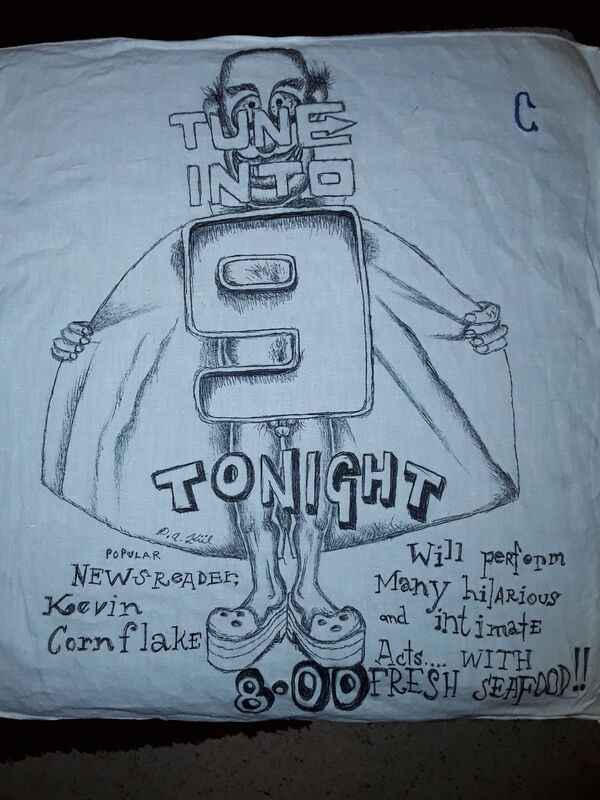 C
TUNE
INTO
9
TONIGHT
POPULAR
NEWSREADER,
Kevin
Cornflake
Will perform
Many hilarious
and intimate
Acts.... WITH
FRESH SEAFOOD!!
8.00